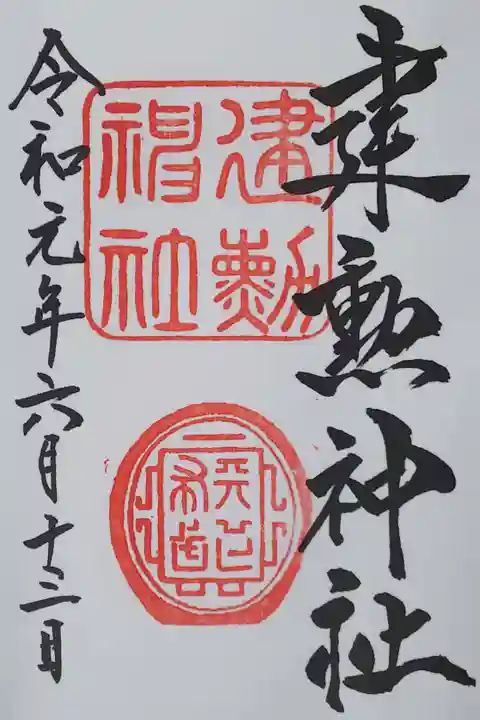 建勲神社
建勲
神社
天下布武
令和元年六月十二日